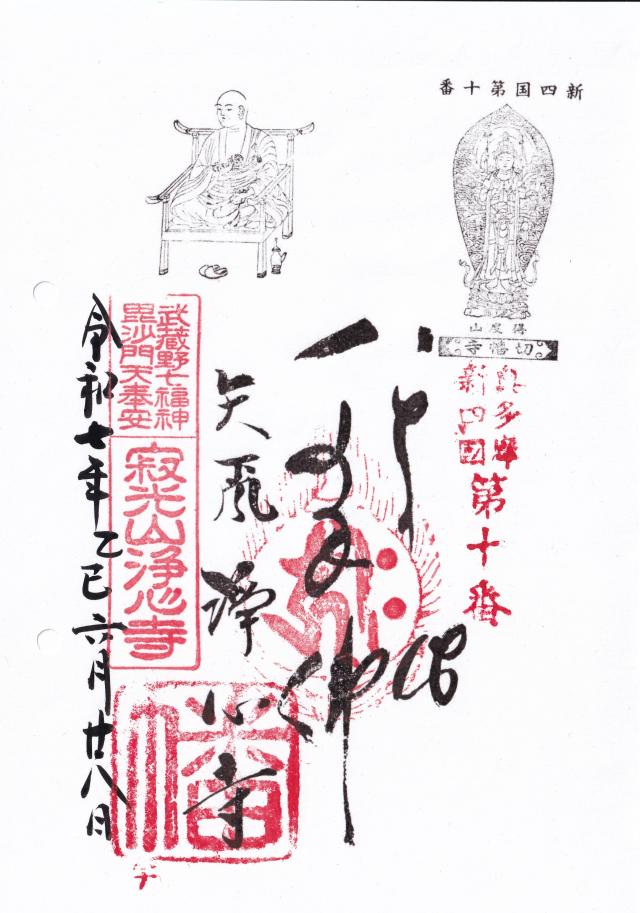 新四国第十番
得度山
切幡寺
奥多摩
新四国
第十番
矢颪浄心寺
武蔵野七福神
毘沙門天奉安
寂光山浄心寺
令和七年乙巳六月廿八日
幡